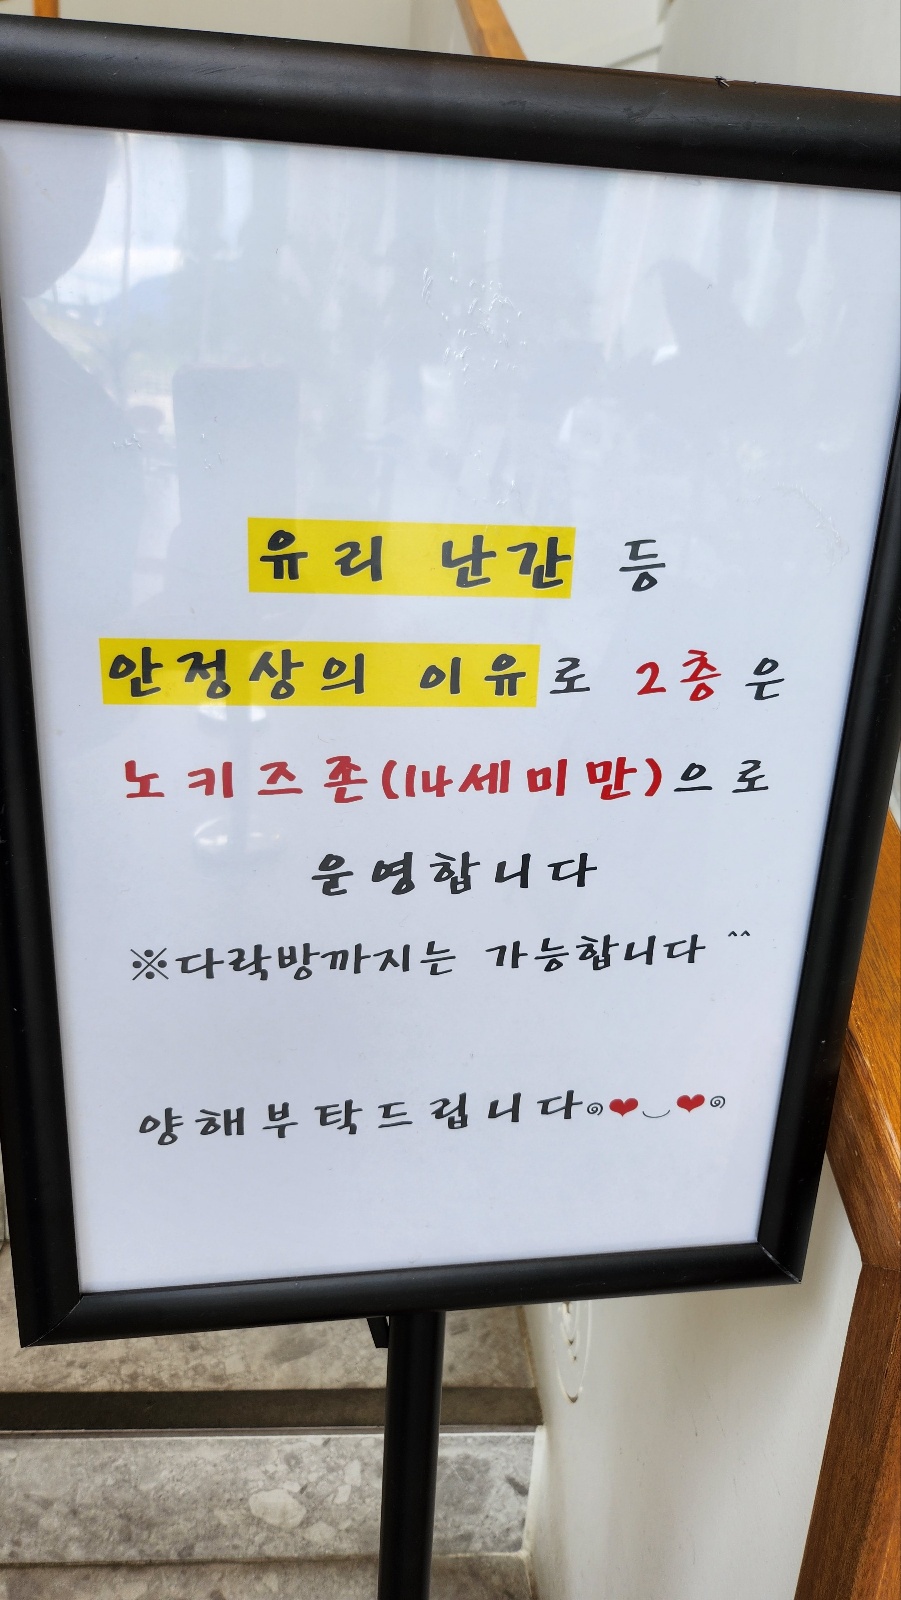 유리 난간 등
안정상의 이유로 2층은
노키즈존(14세미만)으로
운영합니다
※다락방까지는 가능합니다 ^^
양해부탁드립니다๑❤‿❤๑